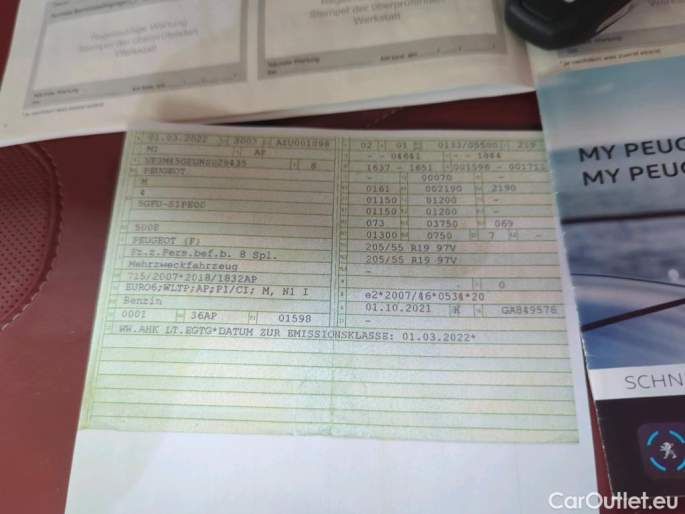 Regelmäßige Wartung
Stempel der überprüfenden
Werkstatt
Stempel der überprüfenden
Werkstatt
Nächste Wartung
01.03.2022 3003
M1 AF
PEUGEOT
M
4
5008
PEUGEOT (F)
Fz.z.Pers.bef.b. 8 Spl.
Mehrzweckfahrzeug
715/2007*2018/1832AP
EURO6;WLTP;AP;PI/CI; M, N1 I
Benzin
0001 36AP 01598
WW.AHK LT.EGTG*DATUM ZUR EMISSIONSKLASSE: 01.03.2022*
02 01 0133/05500 219
- - 04641 - - 1844
- 00070 - -
0161 002190 2190
01150 01200 -
01150 01200 -
073 03750 069
01300 0750 7 -
205/55 R19 97V
205/55 R19 97V
-
- 0
e2*2007/46*0534*20
01.10.2021 K GA849576
-
MY PEUG
MY PEUG
SCHN
CarOutlet.eu